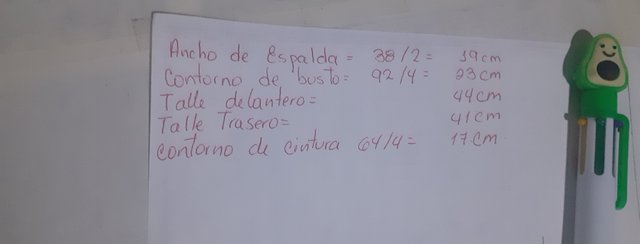 Ancho de Espalda = 38/2 = 19cm
Contorno de busto= 92/4 = 23cm
Talle delantero= 44cm
Talle Trasero= 41cm
contorno de cintura 64/4= 17cm